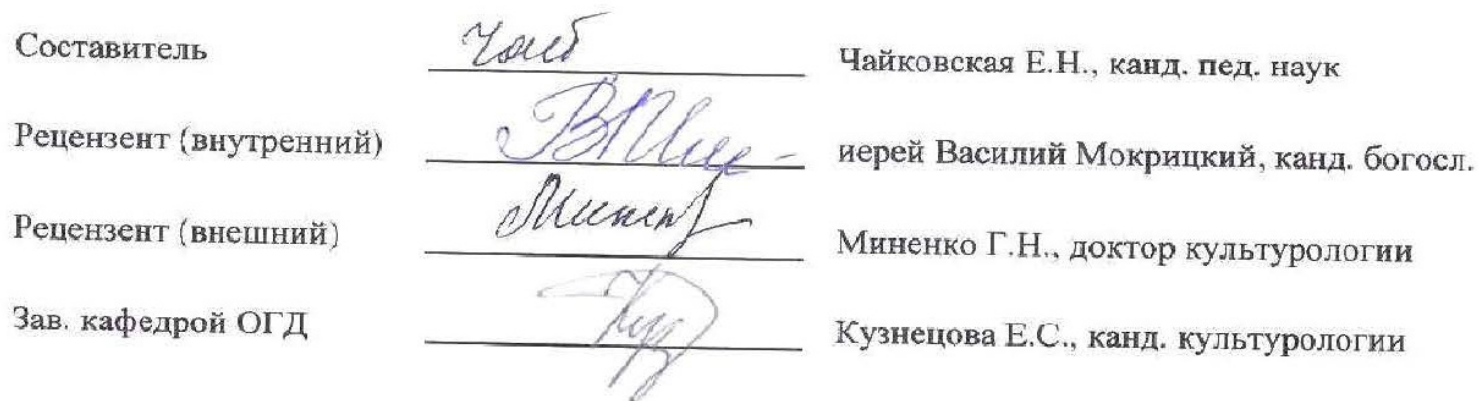 Составитель Чайковская Е.Н., канд. пед. наук
Рецензент (внутренний) иерей Василий Мокрицкий, канд. богосл.
Рецензент (внешний) Миненко Г.Н., доктор культурологии
Зав. кафедрой ОГД Кузнецова Е.С., канд. культурологии